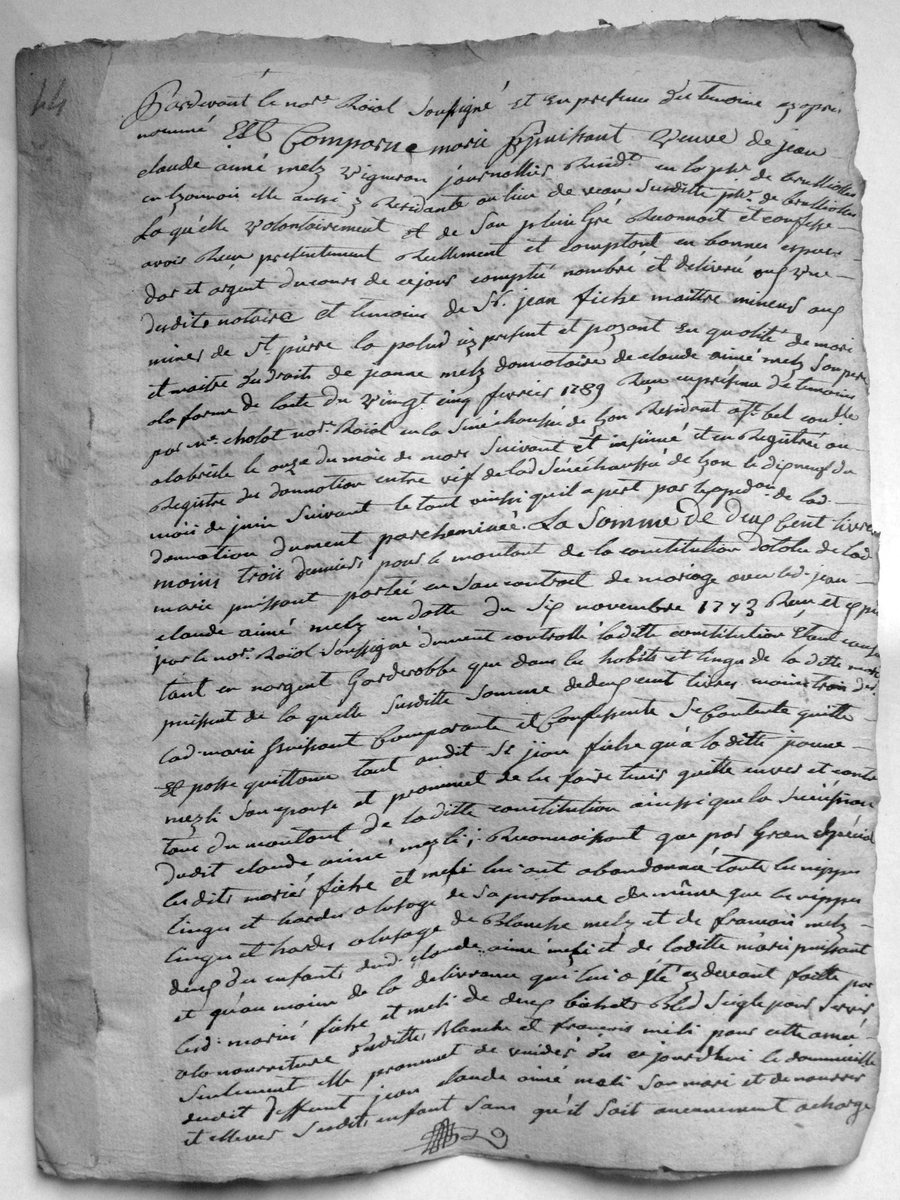 44
Pardevant le notre. Roial Soussigné et en presence des temoins cy apres
nommé Est Comparue marie puissant veuve de jean
claude aimé metz vigneron journallier Residt. en la psse. de brullioles
en lyonnois elle aussi y Residante au lieu de veau Susditte psse. de brullioles
Laqu'elle volontairement et de Son plein Gré Reconnoit et confesse
avoir Reçu presentement Reellement et comptant en bonnes especes
dor et argent du cours de ce jour compté nombré et delivré aux vue
desdits notaire et temoins de Sr. jean fiche maître mineur aux
mines de St pierre la palud icy present et payant en qualité de mari
et maitre des droits de jeanne metz donnataire de claude aimé metz Son pere
a la forme de lacte du vingt cinq fevrier 1789 Reçu en presence de temoins
par me. cholot notre. Roial en la Sénéchaussée de lyon Resident a St. bel
a labresle le onze du mois de mars Suivant et insinué et enRegistrée au
Registre des donnation entre vifs de lad. Sénéchaussée de lyon le dixneuf du
mois de juin Suivant le tout ainssi qu'il apert par lexpedon. de lad.
donnation dument parcheminée. La Somme De Deux Cent livres
moins trois deniers pour le montant de la constitution dotale de lad.
marie puissant portée en Son contract de mariage avec led. jean
claude aimé metz en datte du Six novembre 1773 Reçu et
par le notre. Roial Soussigné dument controllé laditte constitution
tant en argent Garderobbe que dans les habits et linges de la ditte marie
puissant de la quelle Susditte Somme de deux cent livres moins trois
lad. marie puissant Comparante et Confessante Se Contente quitte
Et passe quittance tant audit Sr jean fiche qu'a laditte jeanne
metzli Son epouse et promet de les faire tenir quitte envers et contre
tous du montant de laditte constitution ainssi que la Succession
dudit claude aimé metzli; Reconnaissant que par Grace Spécial
lesdits mariés fiche et metzli lui ont abandonné toute les nippes
linges et hardes a lusage de Sa personne de même que les nippes
linges et hardes a lusage de Blanche metz et de francois metz
deux des enfants dud. claude aimé metzli et de laditte marie puissant
et qu'au moins de la delivrance qui lui a été cy devant faitte par
lesd. mariés fiche et metli de deux bichets Bled Seigle pour Servir
a la nourriture desdittes Blanche et francois metli pour cette année
Seulement elle promet de vuider des ce jourdhui le dommicille
dudit deffunt jean claude aimé metli Son mari et de nourrir
et ellever Susdits enfant Sans qu'il Soit aucunement a charge